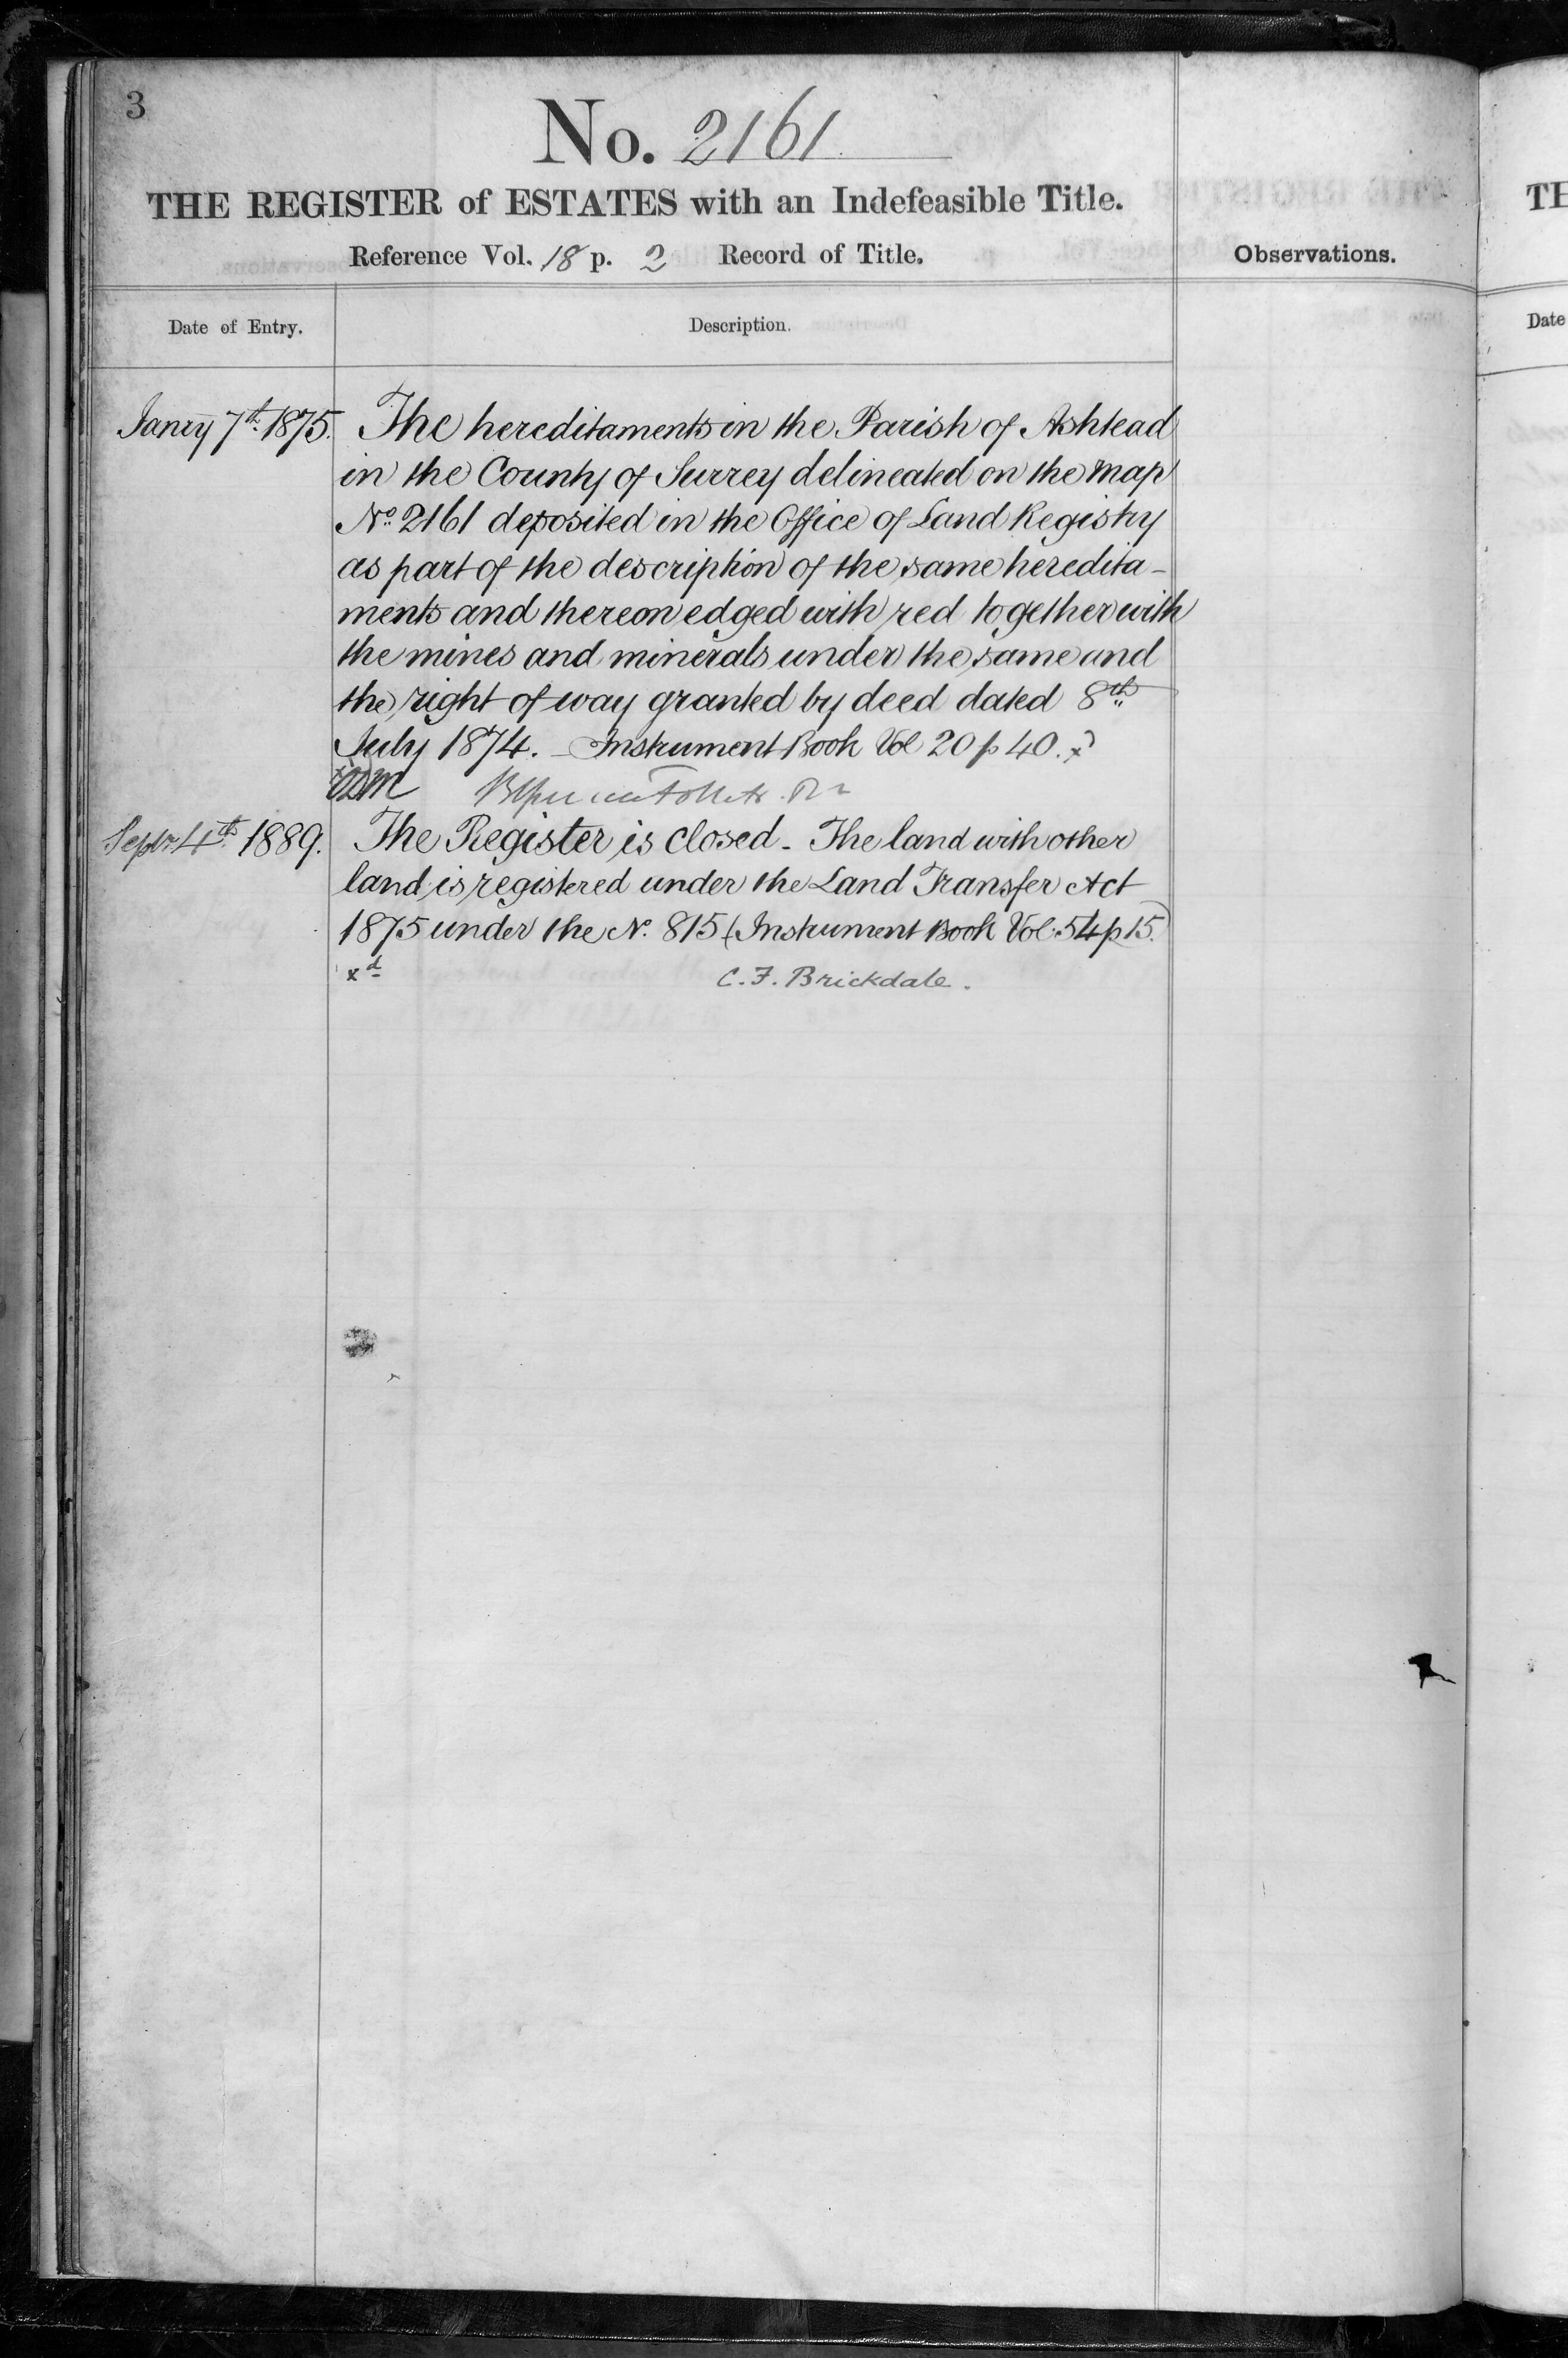 3
No. 2161
THE REGISTER of ESTATES with an Indefeasible Title.
Reference Vol. 18 p. 2 Record of Title.
Observations.
Date of Entry.
Description.
Janry 7th 1875.
The hereditaments in the Parish of Ashtead
in the County of Surrey delineated on the map
No. 2161 deposited in the Office of Land Registry
as part of the description of the same heredita-
ments and thereon edged with red together with
the mines and minerals under the same and
the right of way granted by deed dated 8th
July 1874. - Instrument Book Vol 20 p 40. x
Septr 4th 1889.
The Register is closed - The land with other
land is registered under the Land Transfer Act
1875 under the No. 815 (Instrument Book Vol. 54 p 15.)
xd
C. F. Brickdale.
TH
Date